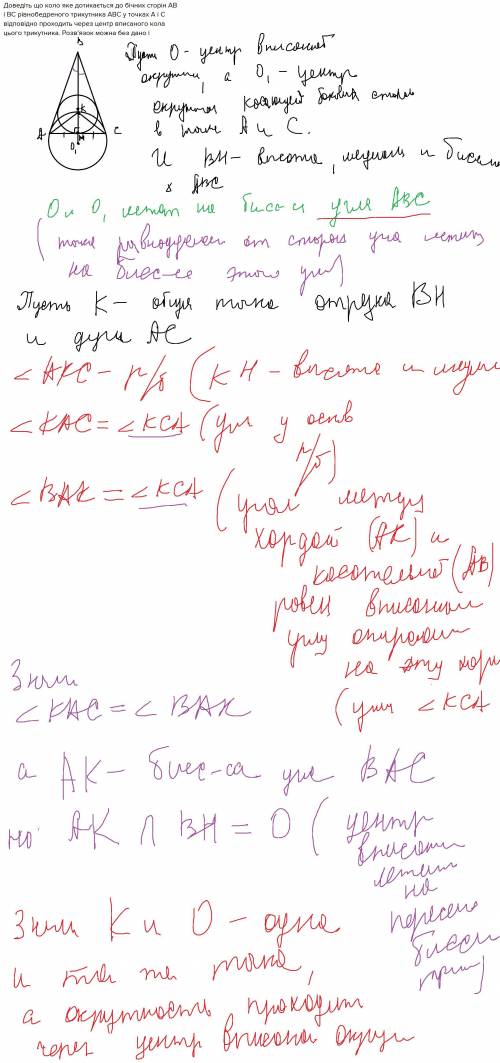 Доведіть що коло яке дотикається до бічних сторін АВ
і ВС рівнобедреного трикутника АВС у точках А і С
відповідно проходить через центр вписаного кола
цього трикутника. Розв'язок можна без дано і
B
K
A
C
M
O₁
Пусть О - центр вписаной
окружн, а О₁ - центр
окружности касающей боковых сторон
в точках А и С.
И ВН - высота, медиана и бисс
Δ АВС
О и О₁ лежат на биссе угла АВС
(точка равноудален от сторон угла лежит
на биссе этого угла)
Пусть К - общая точка отрезка ВН
и дуги АС
∠ АКС - р/б (КН - высота и меди
∠ КАС = ∠ КСА (углы у основ
р/б)
∠ ВАК = ∠ КСА (угол между
хордой (АК) и
касательной (АВ)
равен вписаном
углу опирающ
на эту хор
(угл ∠ КСА
Значит
∠ КАС = ∠ ВАК
а АК - бисс-са угла ВАС
но АК ∩ ВН = О (центр
вписан
лежит
на
пересеч
биссе
треуг)
Значит К и О - одна
и та же точка,
а окружность проходит
через центр вписаной окруж